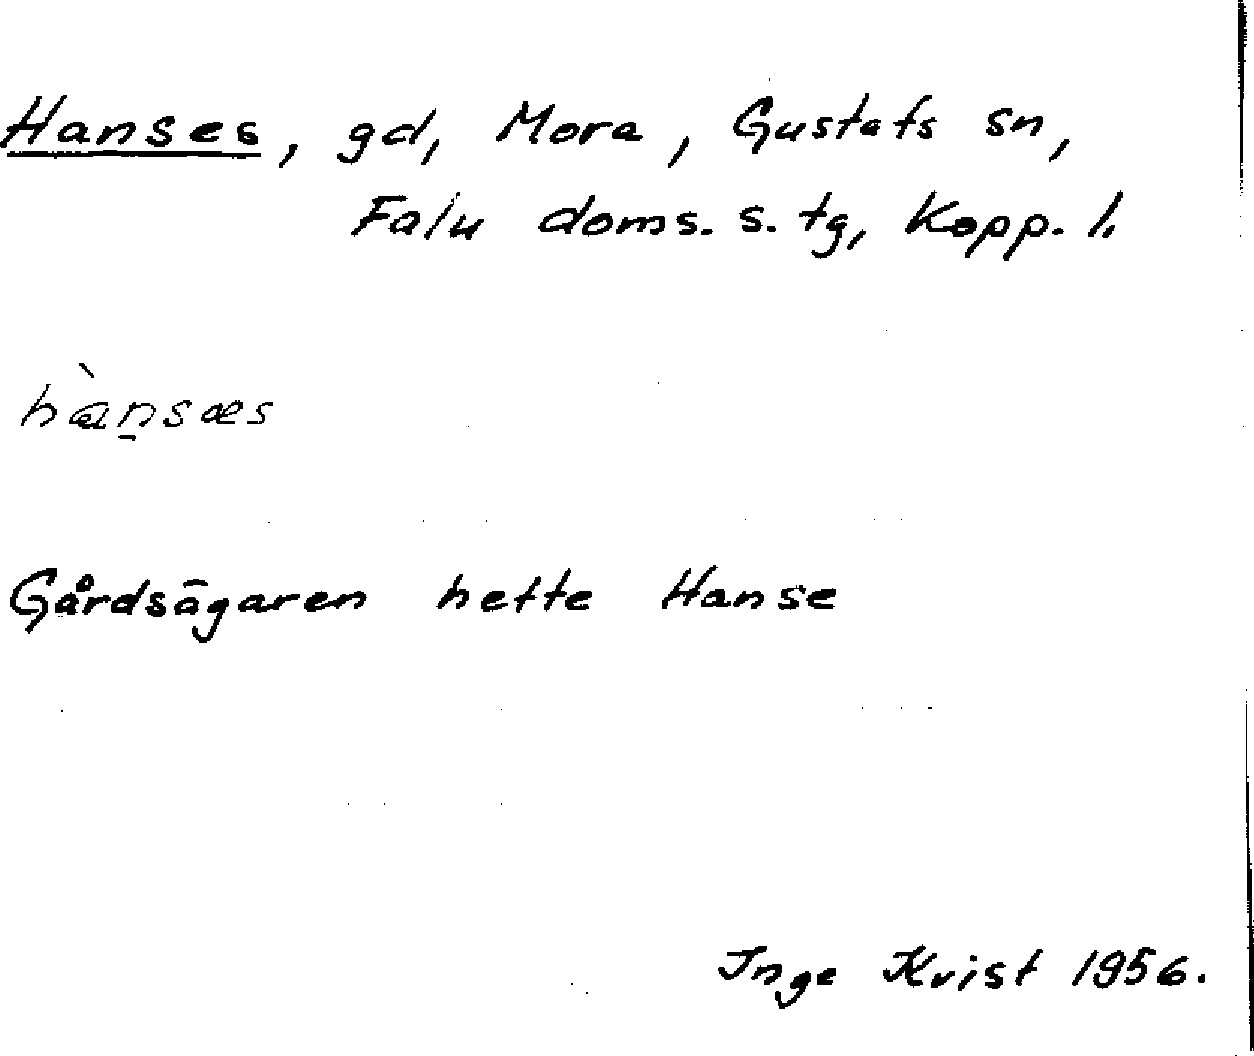 Hanses, gd, Mora, Gustafs sn,
Falu doms. s. tg, Kopp. l.
hàn̠sæs
Gårdsägaren hette Hanse
Inge Kvist 1956.